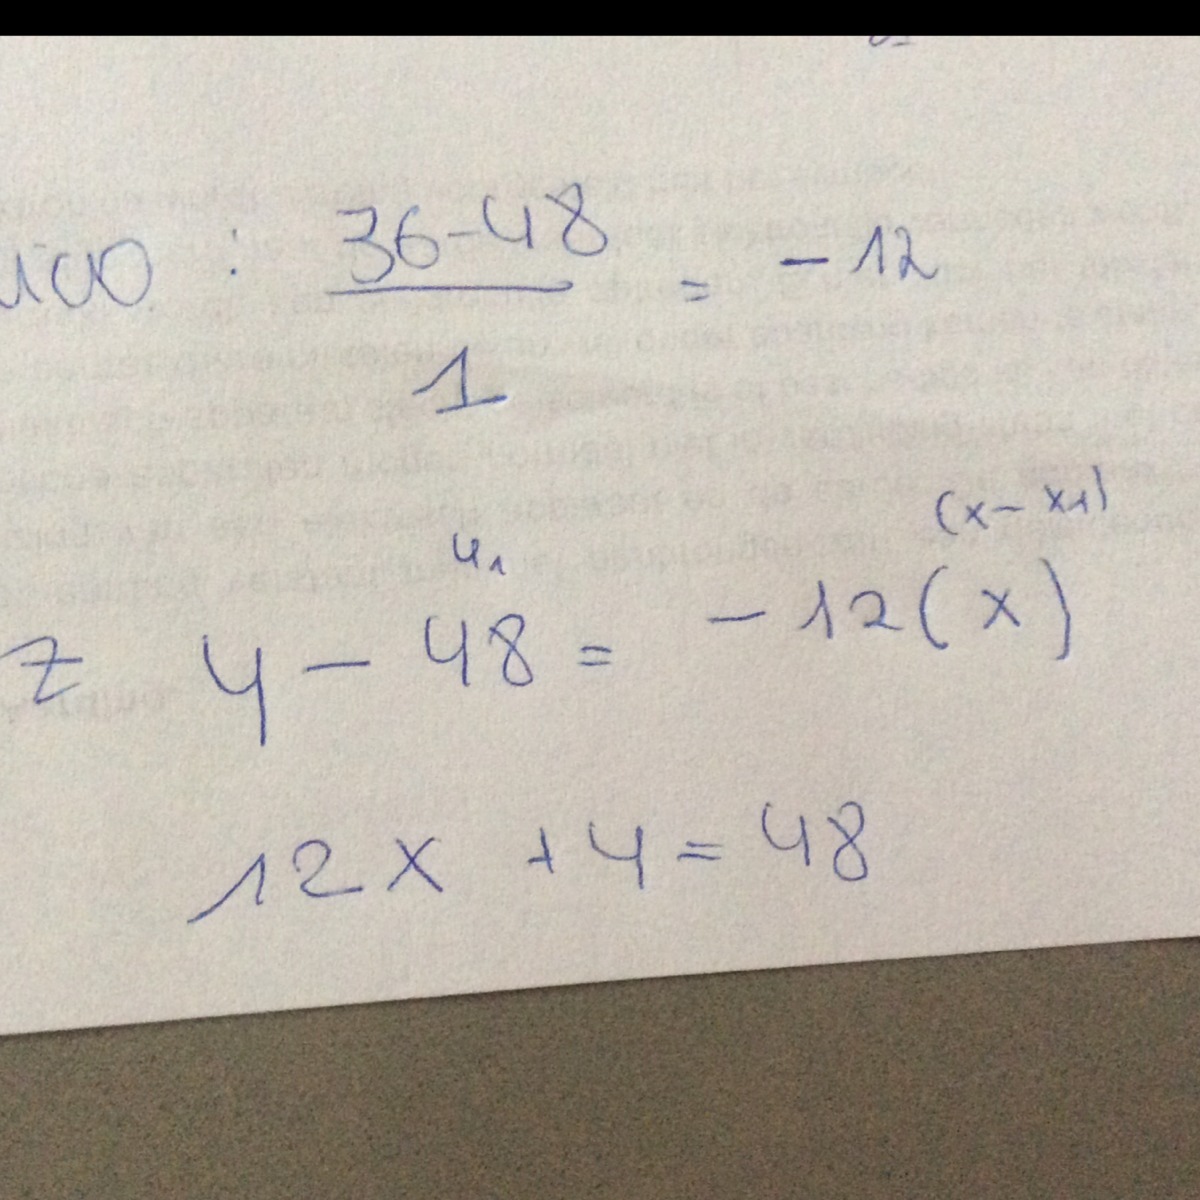 : 36-48 / 1 = - 12
y₁ (x - x₁)
z y - 48 = - 12 (x)
12x + y = 48